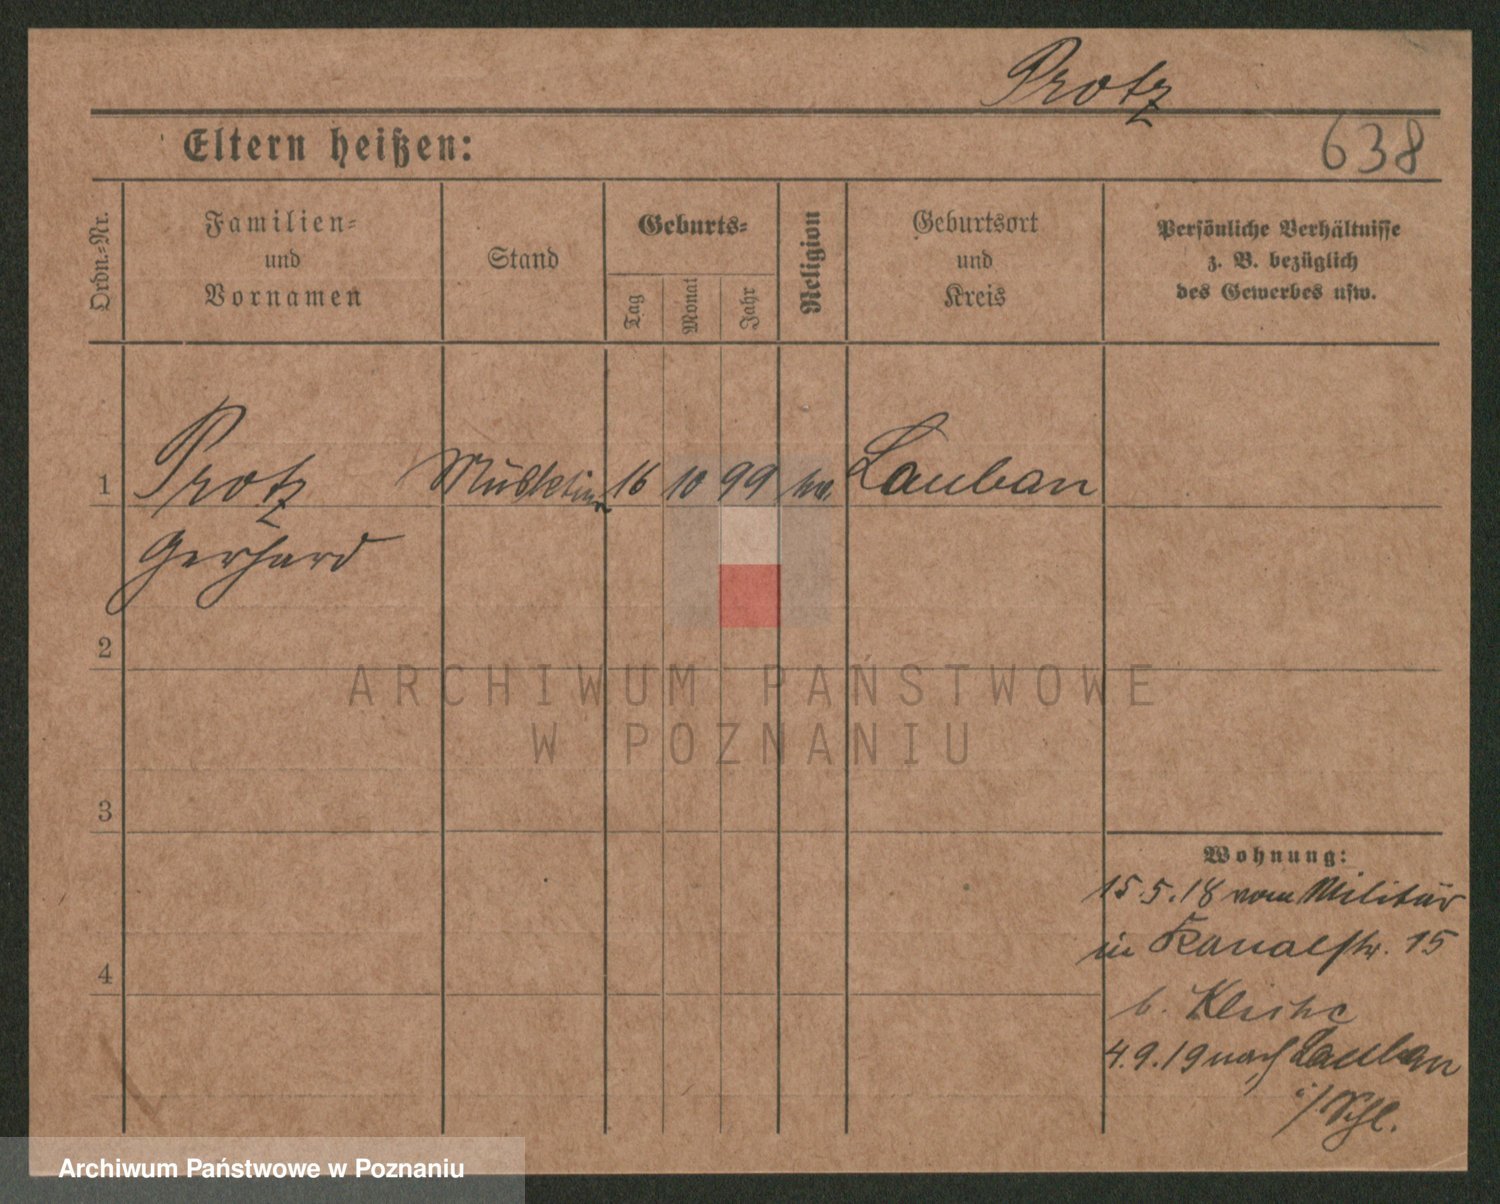 Protz
Eltern heißen:
638
Ordn.-Nr.
Familien-
und
Vornamen
Stand
Geburts-
Tag
Monat
Jahr
Religion
Geburtsort
und
Kreis
Persönliche Verhältnisse
z. B. bezüglich
des Gewerbes usw.
1
Protz
Gerhard
Musketier
16
10
99
Lauban
2
3
4
ARCHIWUM PAŃSTWOWE
W POZNANIU
Wohnung:
15.5.18 vom Militär
in Kanalstr. 15
b.
4.9.19 nach Lauban
i/Schl.
Archiwum Państwowe w Poznaniu